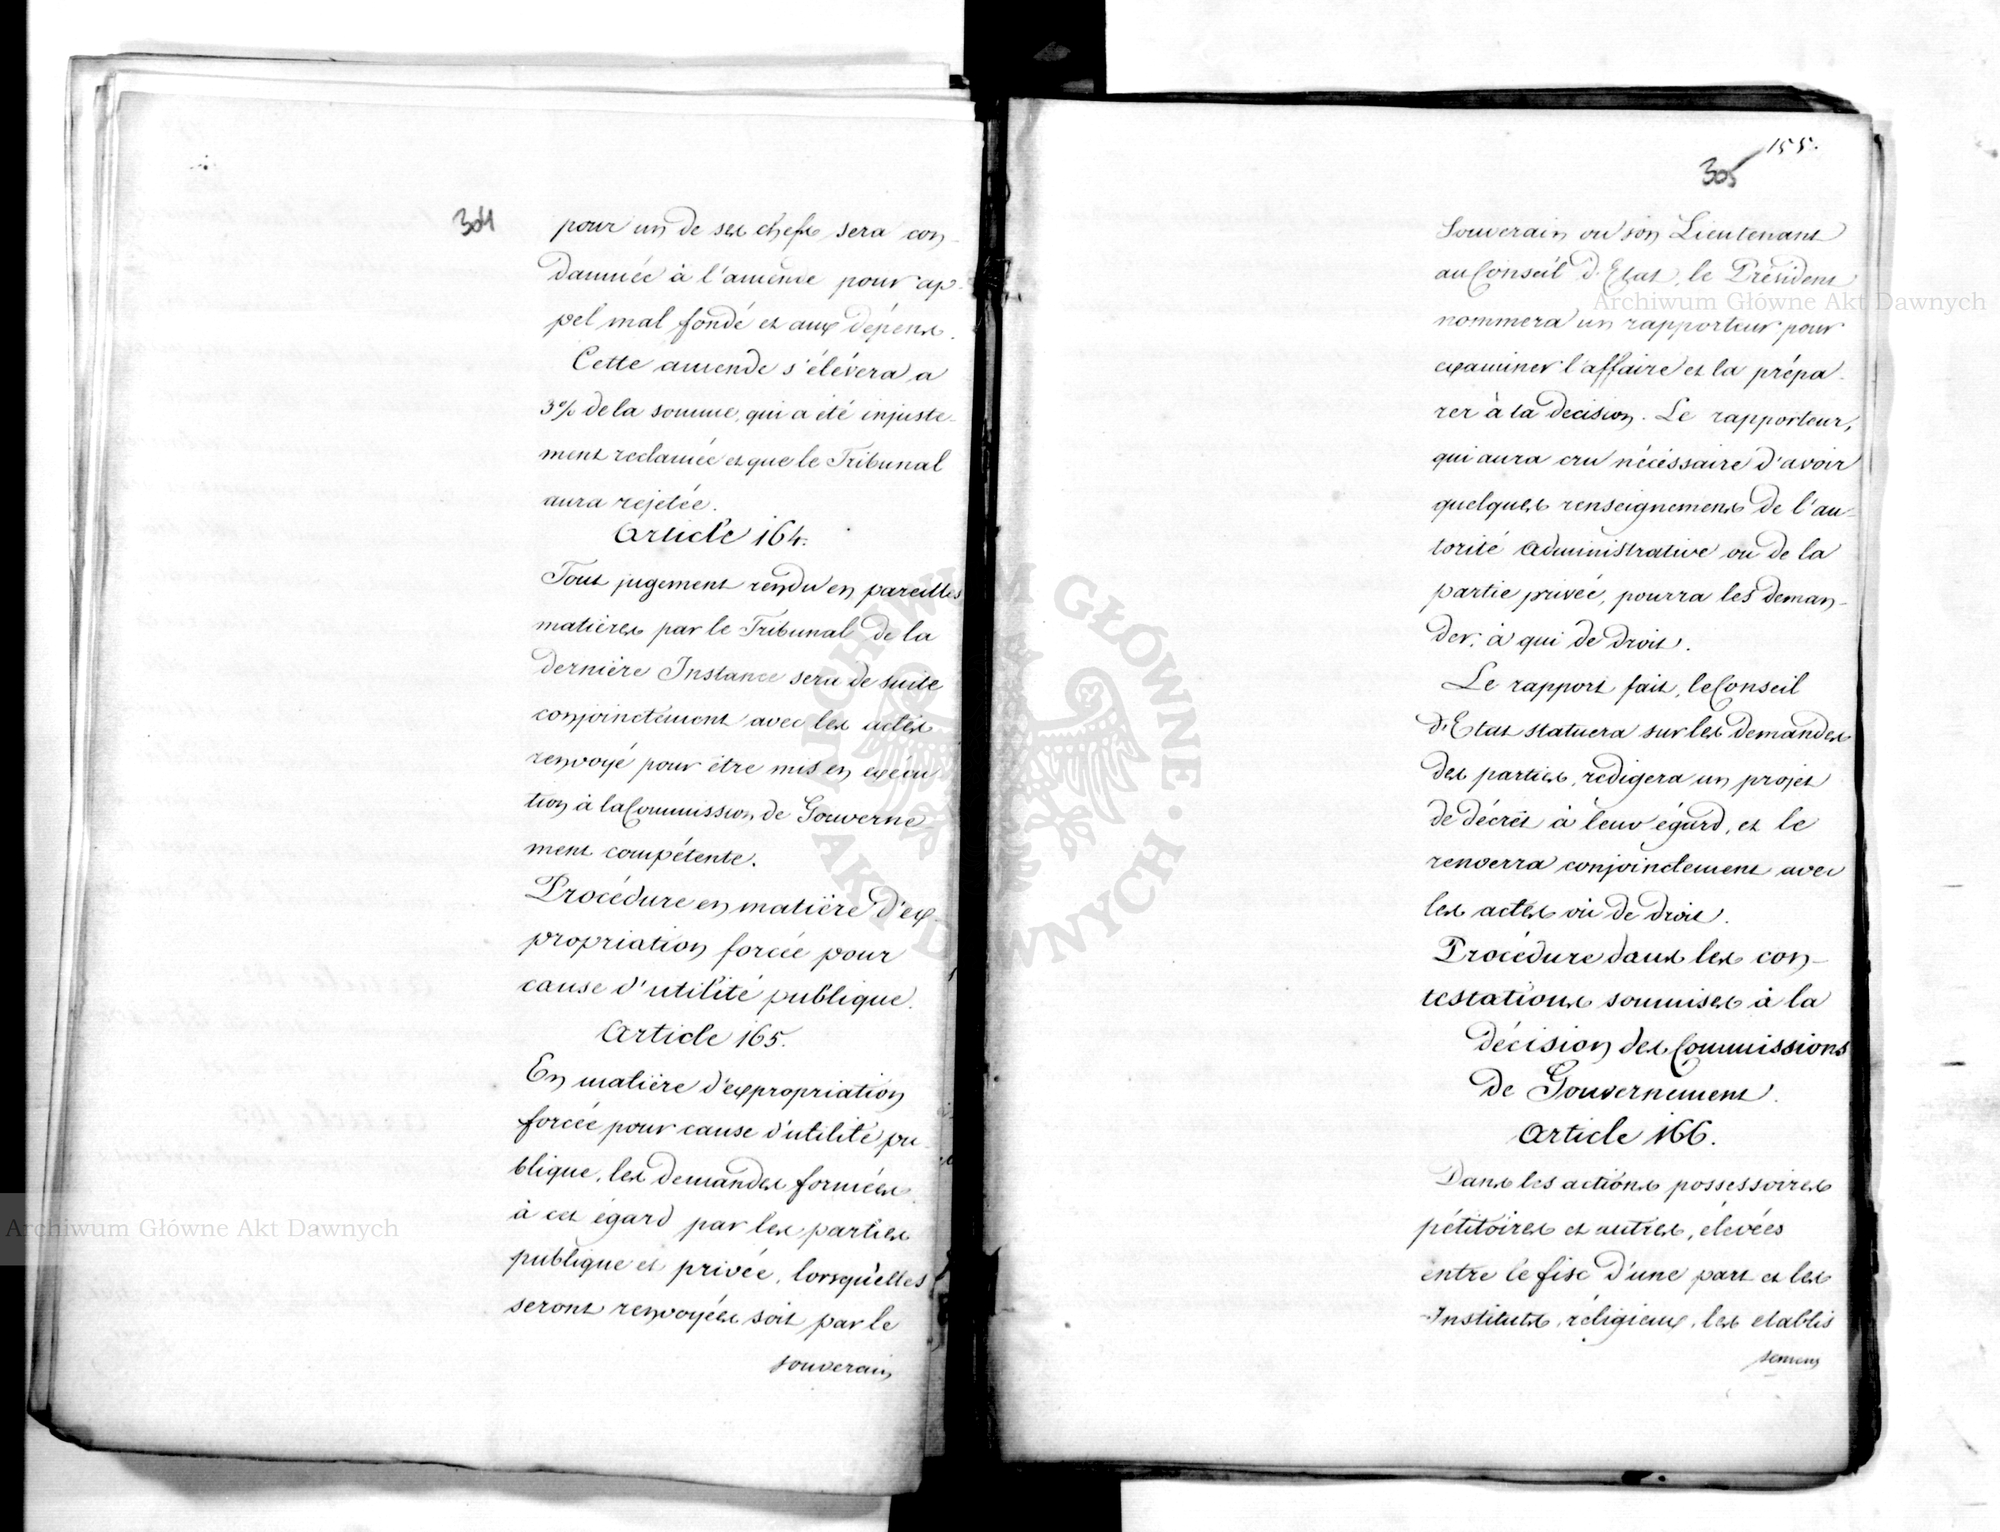 304
pour un de ses chefs sera con-
damnée à l'amende pour ap-
pel mal fondé et aux dépens.
Cette amende s'élévera a
3% de la somme, qui a été injuste-
ment reclamée et que le Tribunal
aura rejetée.
Article 164.
Tout jugement rendu en pareilles
matières par le Tribunal de la
dernière Instance sera de suite
conjoinctement avec les actes
renvoyé pour être mis en exécu
tion à la Commission de Gouverne
ment compétente.
Procédure en matière d'ex-
propriation forcée pour
cause d'utilité publique.
Article 165.
En matière d'expropriation
forcée pour cause d'utilité pu-
blique, les demandes formées
à cet égard par les parties
publique et privée, lorsqu'elles
seront renvoyées soit par le
souverain
155.
305
Souverain ou son Lieutenant
au Conseil d'Etat, le Président
nommera un rapporteur pour
examiner l'affaire et la prépa-
rer à la decision. Le rapporteur,
qui aura cru nécéssaire d'avoir
quelques renseignemens de l'au-
torité administrative ou de la
partie privée, pourra les deman-
der, à qui de droit.
Le rapport fait, le Conseil
d'Etat statuera sur les demandes
des parties, redigera un projet
de décrèt à leur égard, et le
renverra conjoinctement avec
les actes où de droit.
Procédure dans les con-
testations soumises à la
décision des Commissions
de Gouvernement.
Article 166.
Dans les actions possessoires
pétitoires et autres, élevées
entre le fisc d'une part et les
Instituts réligieux, les etablis
semens
Archiwum Główne Akt Dawnych
Archiwum Główne Akt Dawnych
ARCHIWUM GŁÓWNE AKT DAWNYCH